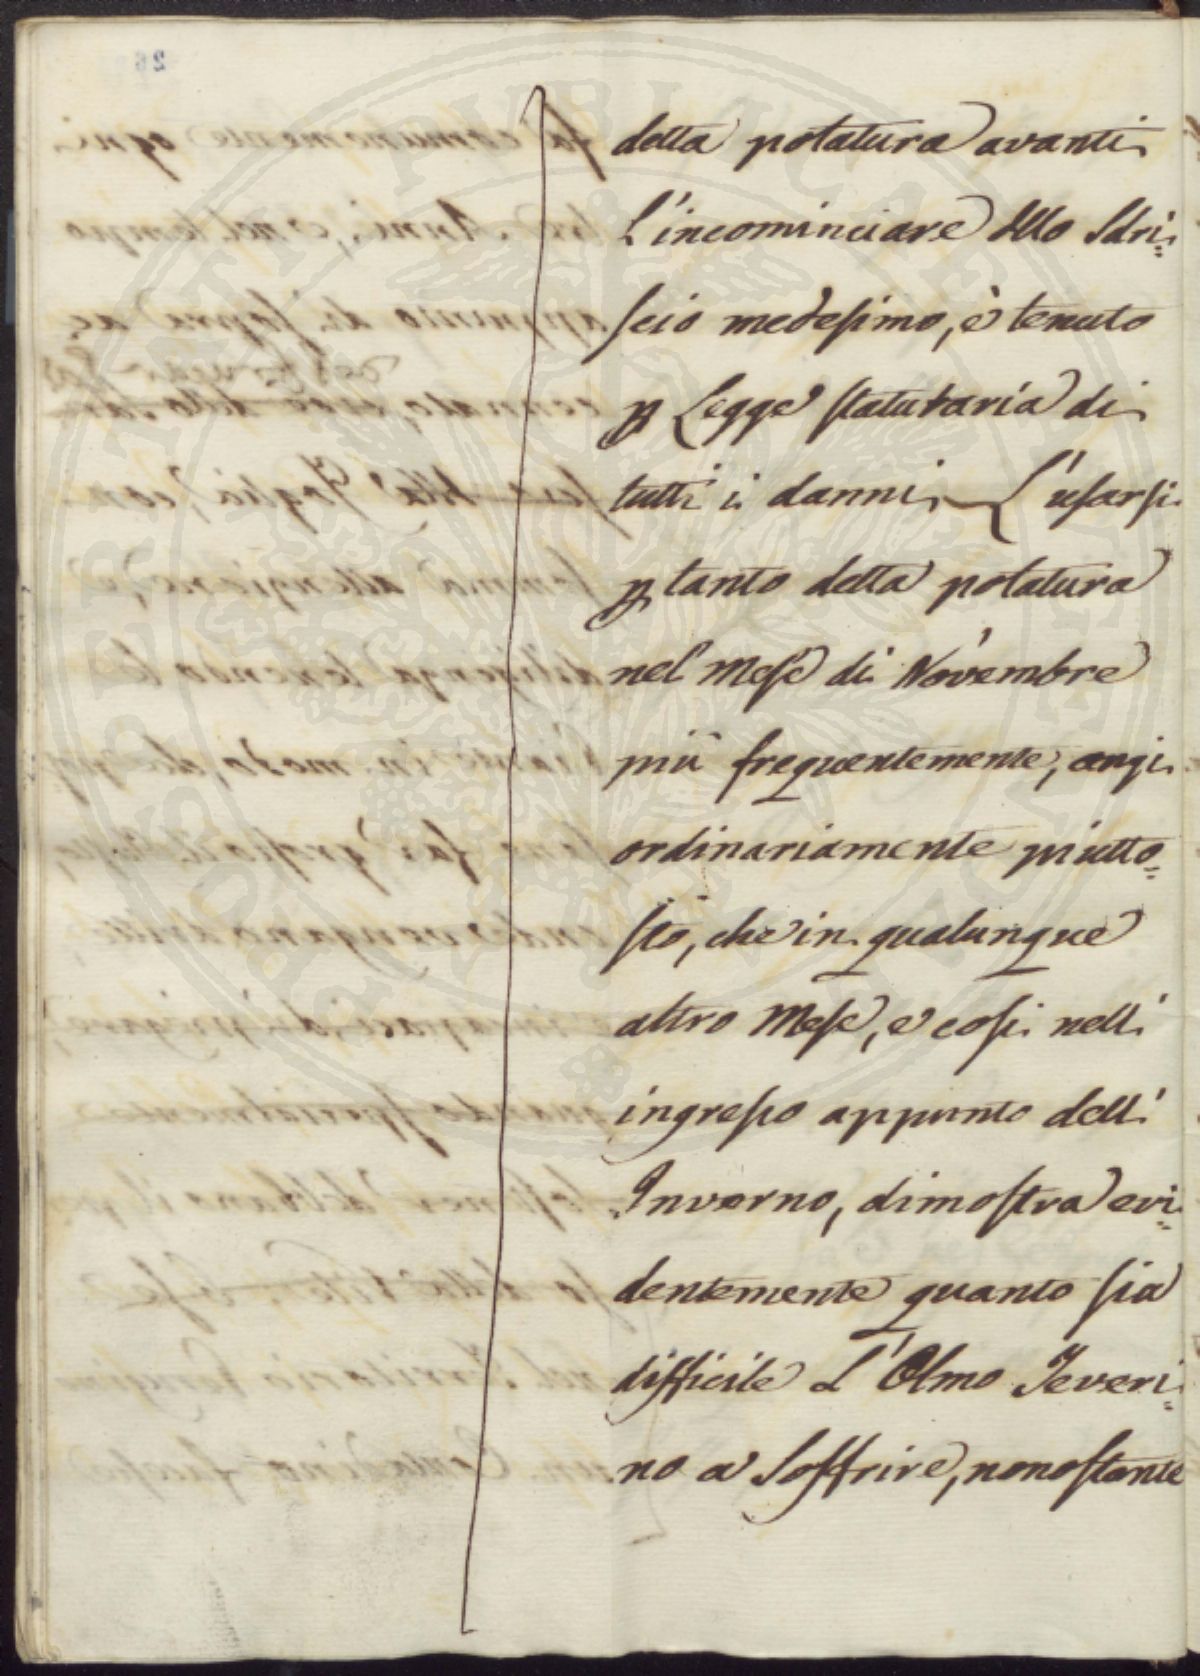 detta potatura avanti
L'incominciare dello Sdri=
scio medesimo, è tenuto
p Legge statutaria di
tutti i danni, L'usarsi
p tanto detta potatura
nel Mese di Novembre
più frequentemente, anzi
ordinariamente piutto=
sto, che in qualunque
altro Mese, e così nell'
ingresso appunto dell'
Inverno, dimostra evi=
dentemente quanto sia
difficile L'Olmo Teveri=
no a soffrire, nonostante